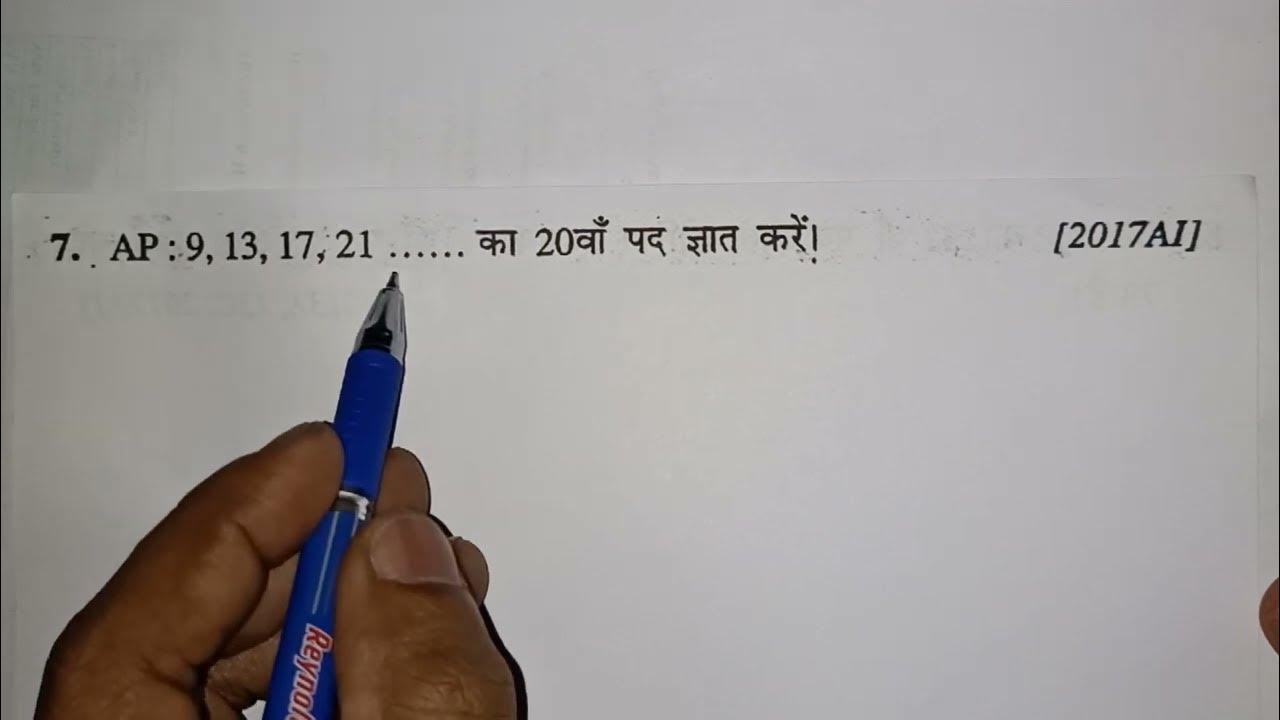 7. AP : 9, 13, 17, 21 ...... का 20वाँ पद ज्ञात करें। [2017AI]